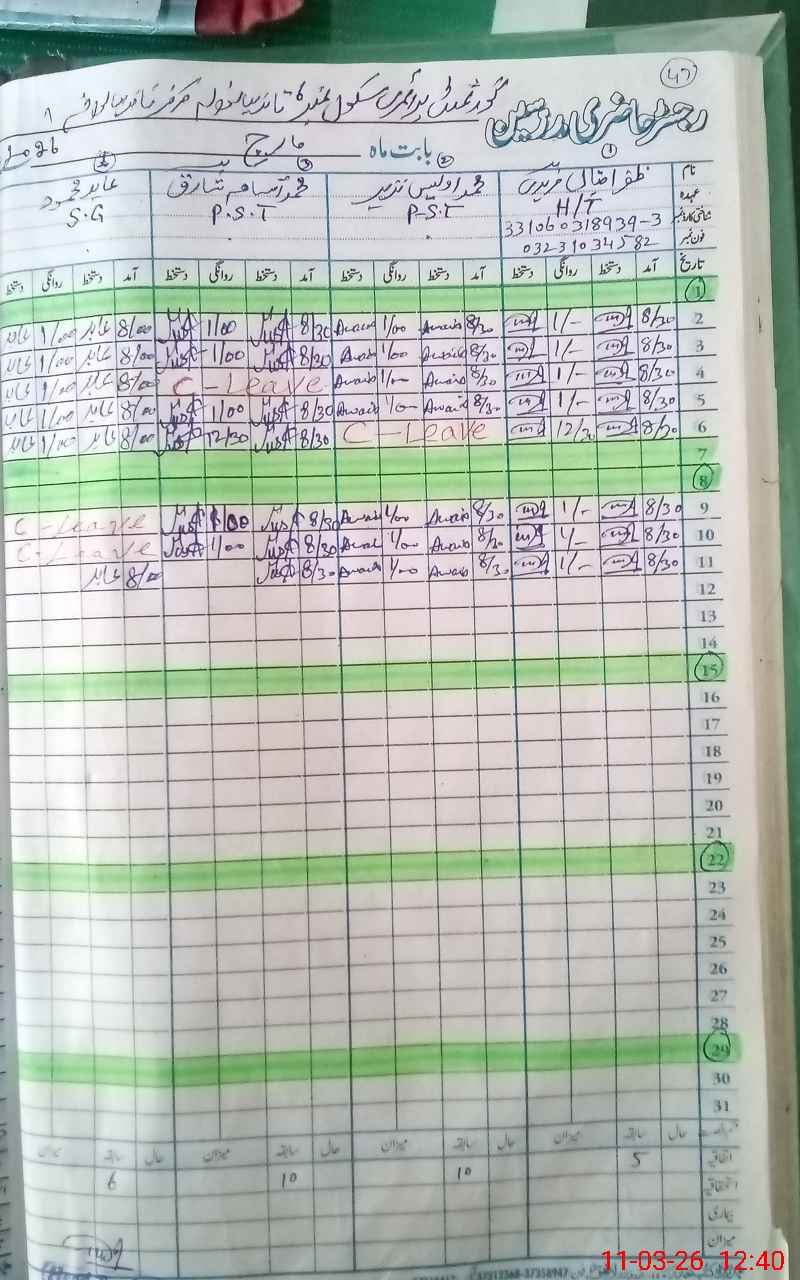 47
رجسٹر حاضری مدرسین گورنمنٹ پرائمری سکول
بابت ماہ مارچ 2026
نام ① ظفر اقبال فریدی ② محمد اویس نذیر ③ محمد اسامہ شارق ④ عابد محمود
عہدہ H/T P-S.T P.S.T S.G
شناختی کارڈ نمبر 331060318939-3
فون نمبر 03231034582
تاریخ آمد دستخط روانگی دستخط آمد دستخط روانگی دستخط آمد دستخط روانگی دستخط آمد دستخط روانگی دستخط
1
2 8/30 1/- 8/30 Awais 1/00 Awais 8/30 1/00 8/00 عابد 1/00 عابد
3 8/30 1/- 8/30 Awais 1/00 Awais 8/30 1/00 8/00 عابد 1/00 عابد
4 8/30 1/- 8/30 Awais 1/00 Awais C-Leave 8/00 عابد 1/00 عابد
5 8/30 1/- 8/30 Awais 1/00 Awais 8/30 1/00 8/00 عابد 1/00 عابد
6 8/30 12/30 C-Leave 8/30 12/30 8/00 عابد 1/00 عابد
7
8
9 8/30 1/- 8/30 Awais 1/00 Awais 8/30 1/00 C-Leave
10 8/30 1/- 8/30 Awais 1/00 Awais 8/30 1/00 C-Leave
11 8/30 1/- 8/30 Awais 1/00 Awais 8/30 8/00 عابد
12
13
14
15
16
17
18
19
20
21
22
23
24
25
26
27
28
29
30
31
حال سابقہ میزان حال سابقہ میزان حال سابقہ میزان حال سابقہ میزان
اتفاقیہ 5 10 10 6
استحقاقیہ
بیماری
میزان
11-03-26 12:40